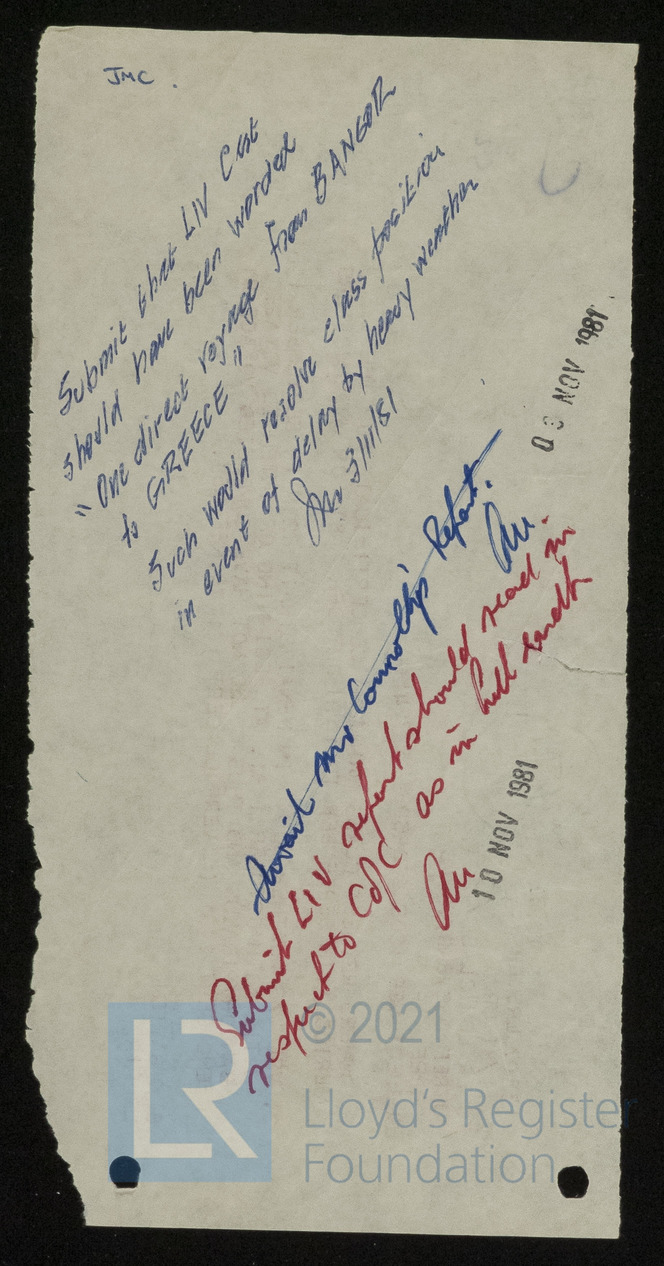 JMC.
Submit that LIV Cert
should have been worded
" One direct voyage from BANGOR
to GREECE "
Such would resolve class position
in event of delay by heavy weather
3/11/81
03 NOV 1981
Await Mr Connolly's Report.
Submit LIV report should read in
respect to CofC as in
10 NOV 1981
LR
© 2021
Lloyd's Register
Foundation